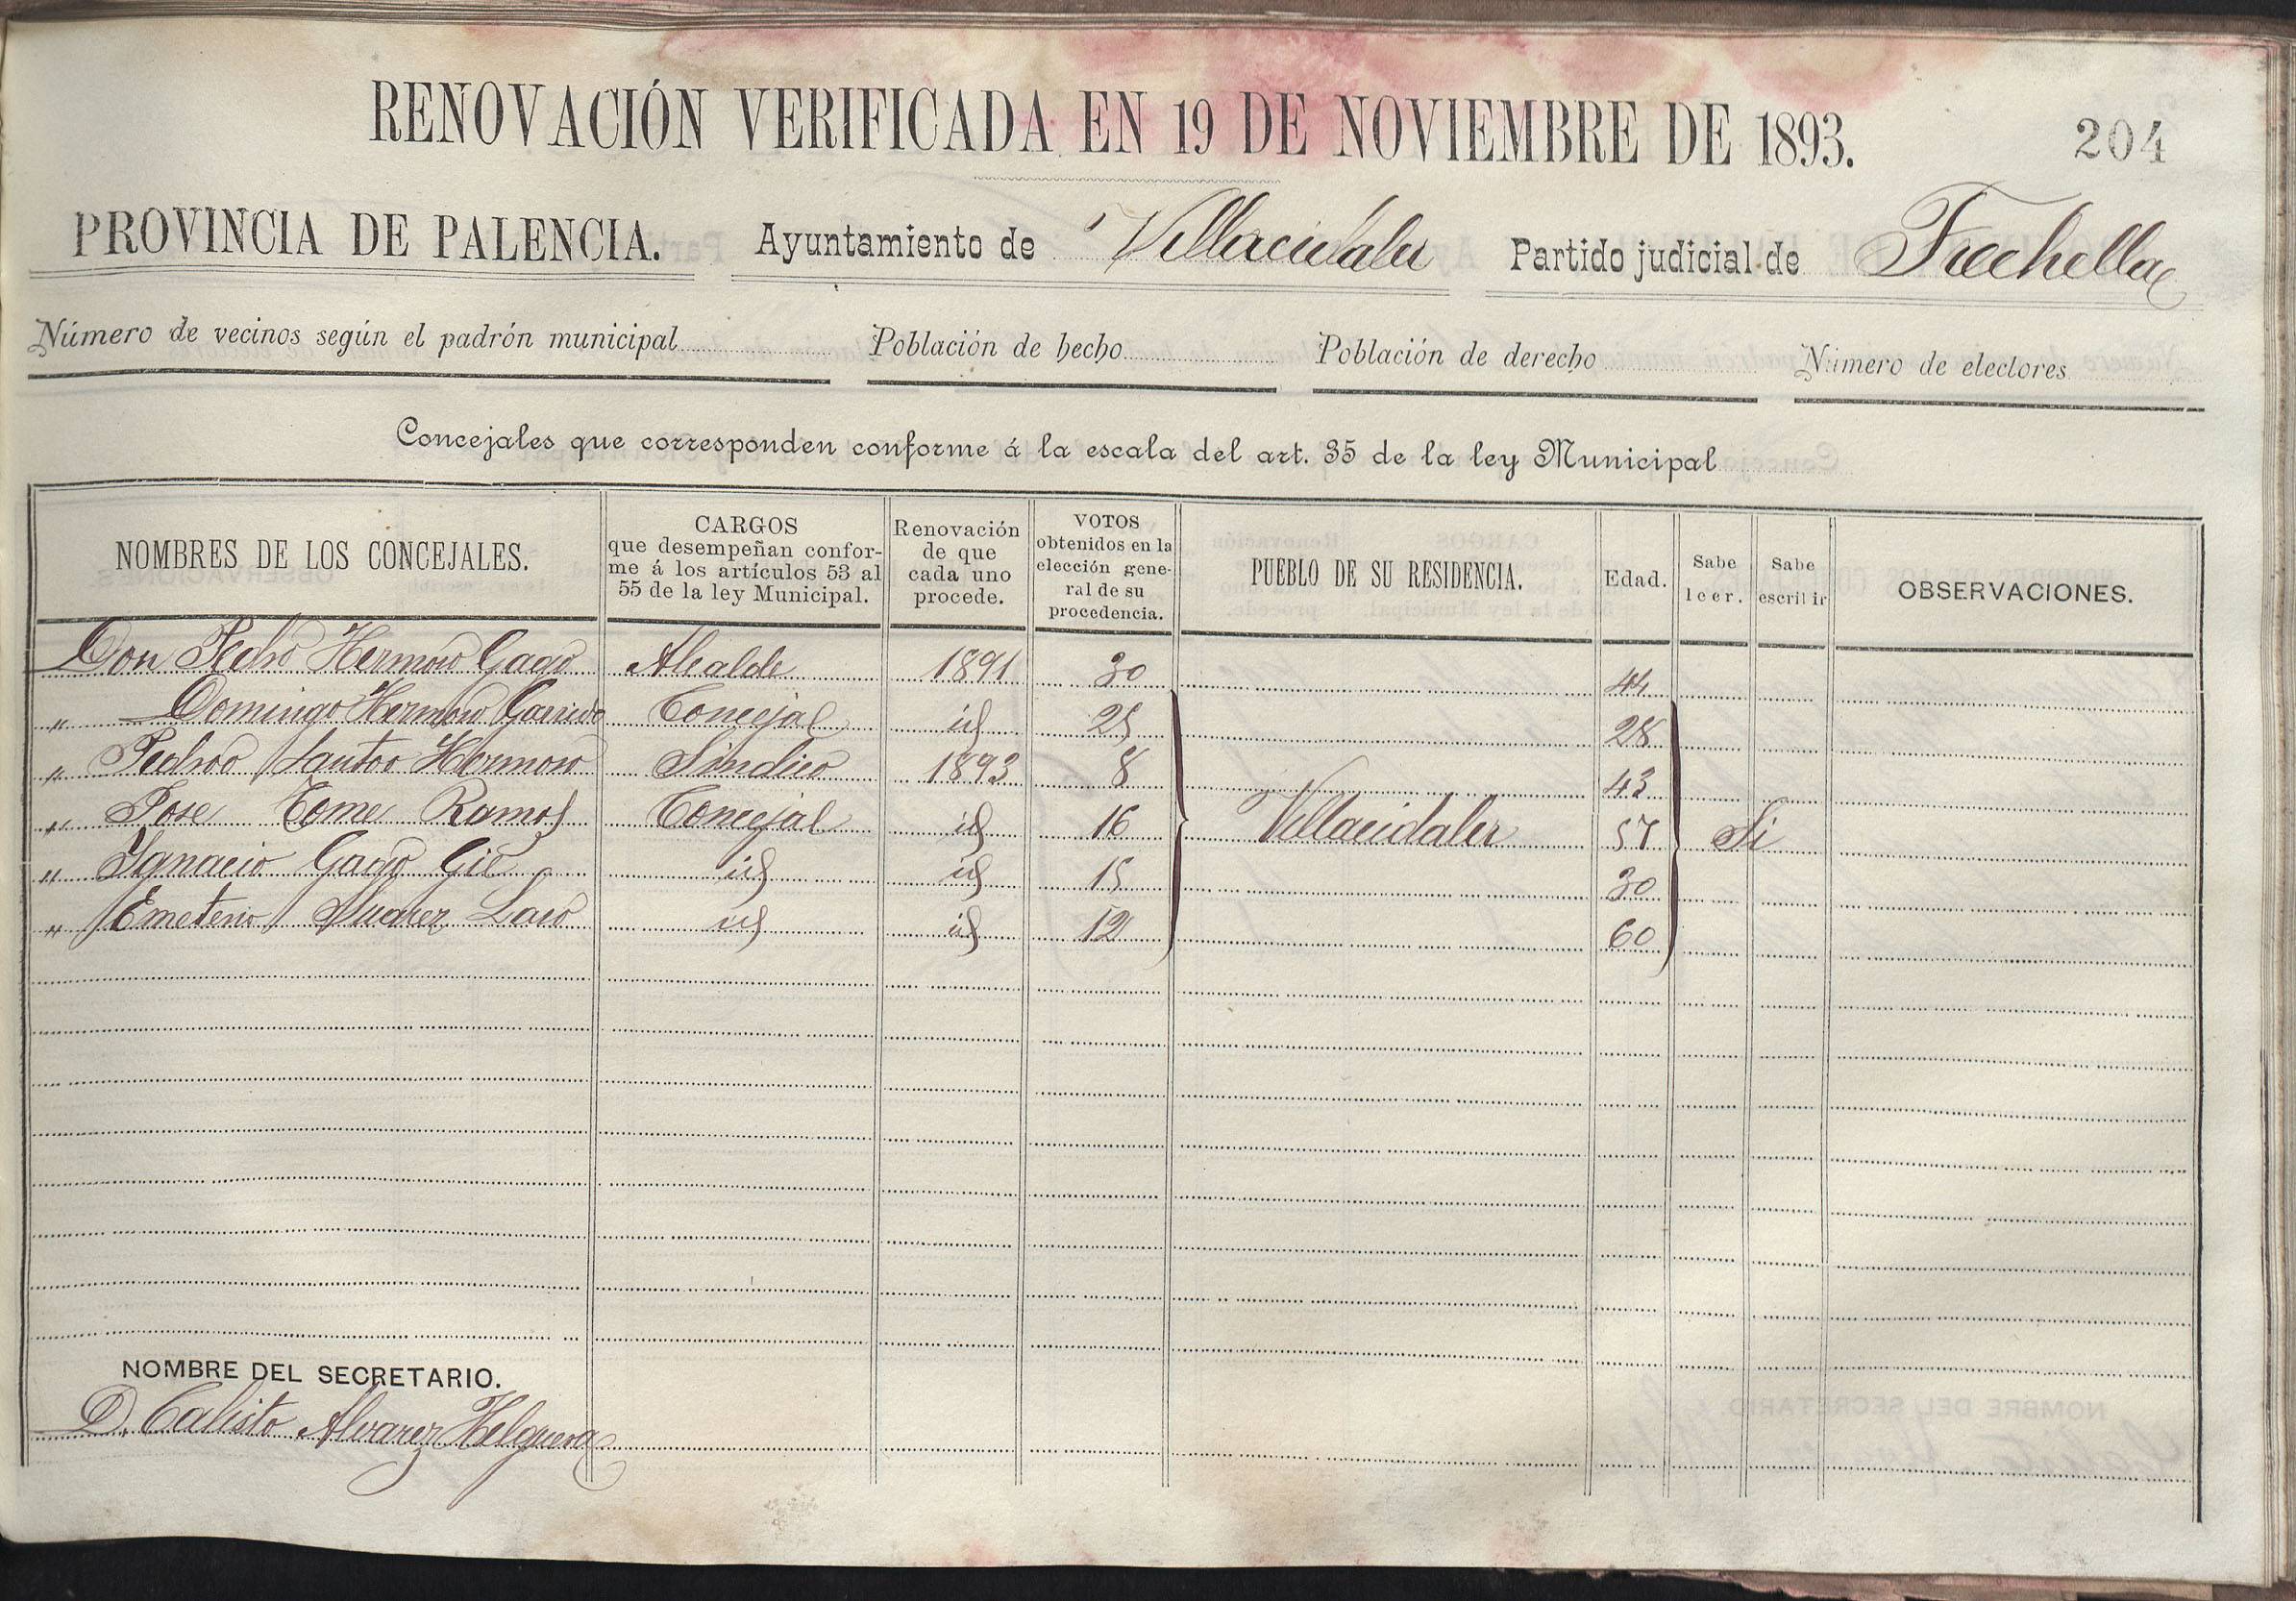 RENOVACIÓN VERIFICADA EN 19 DE NOVIEMBRE DE 1893. 204
PROVINCIA DE PALENCIA. Ayuntamiento de Villacidaler Partido judicial de Frechilla
Número de vecinos según el padrón municipal Población de hecho Población de derecho Número de electores
Concejales que corresponden conforme á la escala del art. 35 de la ley Municipal
NOMBRES DE LOS CONCEJALES. CARGOS que desempeñan conforme á los artículos 53 al 55 de la ley Municipal. Renovación de que cada uno procede. VOTOS obtenidos en la elección general de su procedencia. PUEBLO DE SU RESIDENCIA. Edad. Sabe leer. Sabe escribir OBSERVACIONES.
Don Pedro Hermoso Gago Alcalde 1891 30 44
" Domingo Hermoso Garrido Concejal id 25 28
" Pedro Santos Hermoso Síndico 1893 8 43
" Jose Tome Ramos Concejal id 16 Villacidaler 57 Si
" Ignacio Gago Gil id id 15 30
" Emeterio Suarez Laso id id 12 60
NOMBRE DEL SECRETARIO.
D. Calisto Alvarez Helguera